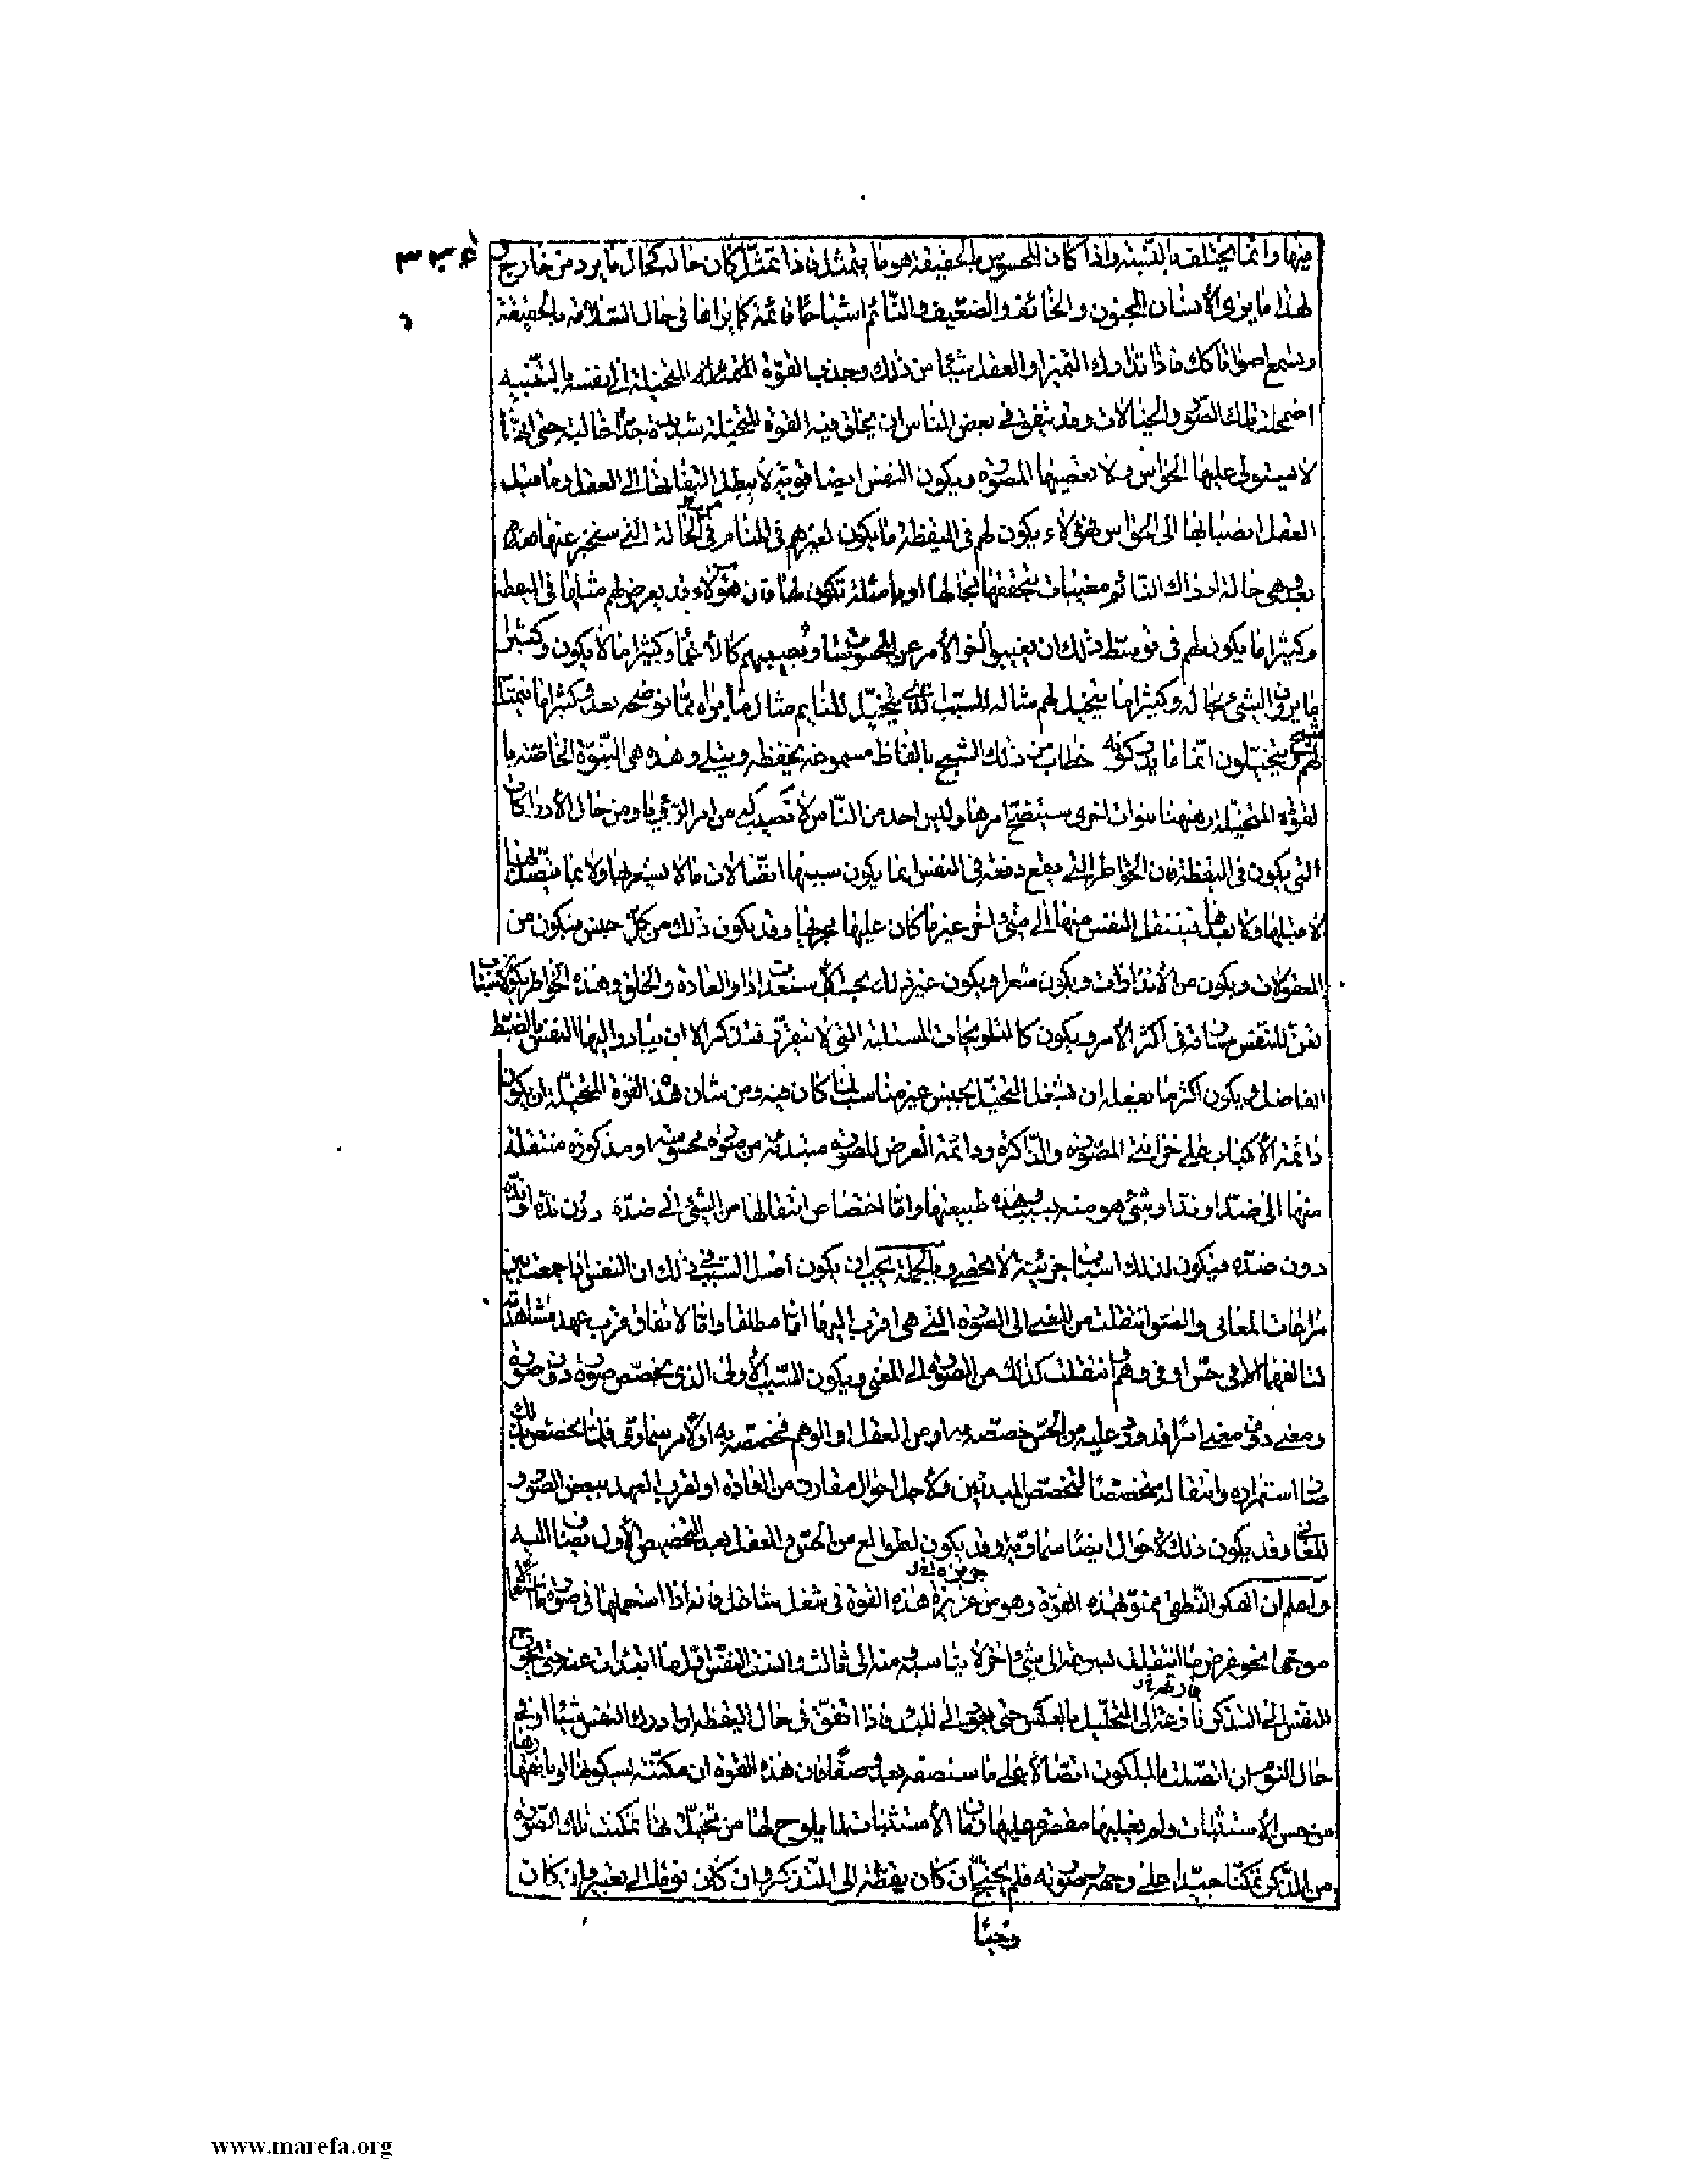 فيها وانما يختلف بالنسبة واذا كان المحسوس بالحقيقة هو ما يتمثل فاذا تمثل كان حاله كحال ما يرد من خارج و
لهذا ما يرى الأنسان المجنون والخائف والضعيف والنائم اشباحا قائمة كما يراها فى حال السلامة بالحقيقة
ويسمع اصواتا كك فاذا تدارك التميز او العقل شيئا من ذلك وجذب القوة المتخيلة الى نفسه بالتنبيه
اضمحلت تلك الصور والخيالات وقد يتفق فى بعض الناس ان يخلق فيه القوة المتخيلة شديدة جدا غالبة حتى انها
لا يستولى عليها الحواس ولا تعصيها المصورة ويكون النفس ايضا قوية لا يبطل التفاتها الى العقل وما قبل
العقل انصبابها الى الحواس فهؤلاء يكون لهم فى اليقظة ما يكون لغيرهم فى المنام فى الحالة التى سنخبر عنها
بعد وهى حالة ادراك النائم مغيبات يتحققها بحالها او بامثلة تكون لها فان هؤلاء قد يعرض لهم مثلها فى اليقظة
وكثيرا ما يكون لهم فى توسط ذلك ان يغيبوا آخر الأمر عن المحسوسات ويصيبهم كالأغماء وكثيرا ما لا يكون وكثيرا
ما يرون الشئ بحاله وكثيرا ما يتخيل لهم مثاله للسبب الذى يتخيل للنايم مثال ما يراه مما نوضحه بعد وكثيرا ما يتمثل
لهم شبح يتخيلون انما ما يدركونه خطاب من ذلك الشبح بالفاظ مسموعة يحفظ ويتلى وهذه هى النبوة الخاصة با
لقوة المتخيلة وههنا نبوات اخرى سيتضح امرها وليس احد من الناس لا نصيب له من امر الرؤيا ومن حال الأدراكات
التى يكون فى اليقظة فان الخواطر التى يقع دفعة فى النفس انما يكون سببها اتصالات ما لا يشعر بها ولا بما يتصل بها
لا قبلها ولا بعدها فينتقل النفس منها الى شئ اخر غير ما كان عليها مجريها وقد يكون ذلك من كل جنس فيكون من
المعقولات ويكون من الأنذارات ويكون شعرا ويكون غير ذلك بحسب الأستعداد والعادة والخلق وهذه الخواطر يكون لأسباب
تعن للنفس مسارقة فى اكثر الأمر ويكون كالتلويحات المستلبة التى لا تتقرر فتذكر الا ان تبادر اليها النفس بالضبط
الفاضل ويكون اكثر ما يفعله ان يشغل التخيل بجنس غير مناسب لما كان فيه ومن شأن هذه القوة المتخيلة ان يكون
دائمة الأكباب على خزانتى المصورة والذاكرة ودائمة العرض للصور مبتدئة من صورة محسوسة او مذكورة منتقلة
منها الى ضد او ند او شئ هو منه بسبب وهذه طبيعتها واما اختصاص انتقالها من الشئ الى ضده دون نده او نده
دون ضده فيكون لذلك اسباب جزئية لا تحصى وبالجملة يجب ان يكون اصل السبب فى ذلك ان النفس اذا جمعت بين
مراعات المعانى والصور انتقلت من المعنى الى الصورة التى هى اقرب اليها اما مطلقا واما لاتفاق قرب عهد مشاهدته
لتألفهما فى حس او فى وهم انتقلت كذلك من الصورة الى المعنى ويكون السبب الأولى الذى يخصص صورة دون صورة
ومعنى دون معنى امرا قد ورد عليه من الحس خصصه به او من العقل او الوهم فخصصه به او لأمر سماوى فلما تخصص بذلك
صار استمراره وانتقاله متخصصا لتخصص المبدئين ولأجل احوال مقارن من العادة او لقرب العهد ببعض الصور و
المعانى وقد يكون ذلك لأحوال ايضا سماوية وقد يكون لطوالع من الحس والعقل بعد التخصيص الأول يضاف اليه
واعلم ان الفكر النطقى ممنو بهذه القوة وهو من غريزة هذه القوة فى شغل شاغل فانه اذا استعملها فى صورة ما استعمالا
موجها نحو غرض ما انتقلت بسرعة الى شئ اخر لا يناسبه ومنه الى ثالث وانست النفس اول ما ابتدأت عنه حتى يحوج
النفس الى التذكر فازعة الى التحليل بالعكس حتى يعود الى المبدأ فاذا اتفق فى حال اليقظة ان ادرك النفس شيئا او فى
حال النوم ان اتصلت بالملكوت اتصالا على ما سنصفه بعد وصفا فان هذه القوة ان مكنته بسكونها او بانقهارها
من حسن الأستثبات ولم يغلبها مقصرة عليها زمان الأستثبات لما يلوح لها من تخيل لها تمكنت تلك الصورة
من الذكر تمكنا جيدا على وجهه وصورته فلم يحتج ان كان يقظة الى التذكر وان كان نوما الى تعبير وان كان
وحيا
www.marefa.org